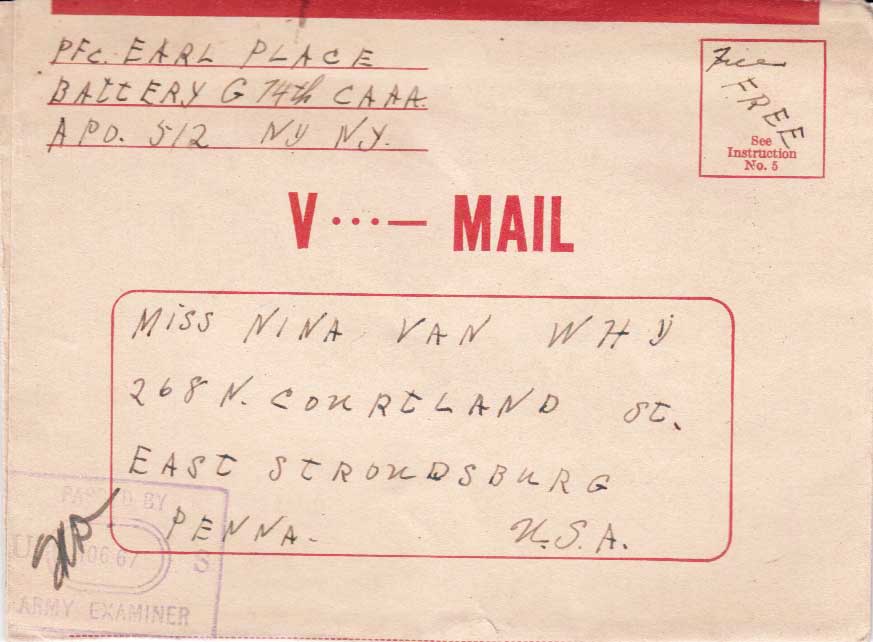 PFC. EARL PLACE
BATTERY G 74th CAAA.
APO. 512 NY NY.
Free
FREE
See
Instruction
No. 5
V ···— MAIL
MISS NINA VAN WHY
268 N. COURTLAND ST.
EAST STROUDSBURG
PENNA. U.S.A.
PASSED BY
U S
ARMY EXAMINER